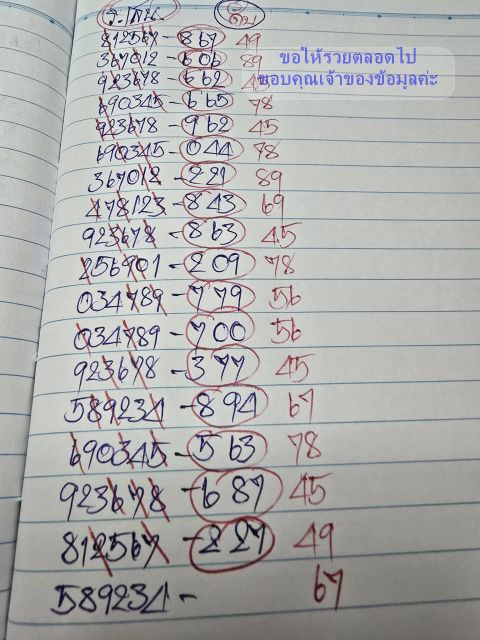 จ.-พฤ. ดับ
812567-867 49
367012-606 89
923678-662 45
690345-665 78
923678-962 45
690345-044 78
367012-221 89
478123-843 69
923678-863 45
256901-209 78
034789-779 56
034789-700 56
923678-377 45
589234-894 67
690345-563 78
923678-687 45
812567-227 49
589234- 67
ขอให้รวยตลอดไป
ขอบคุณเจ้าของข้อมูลค่ะ